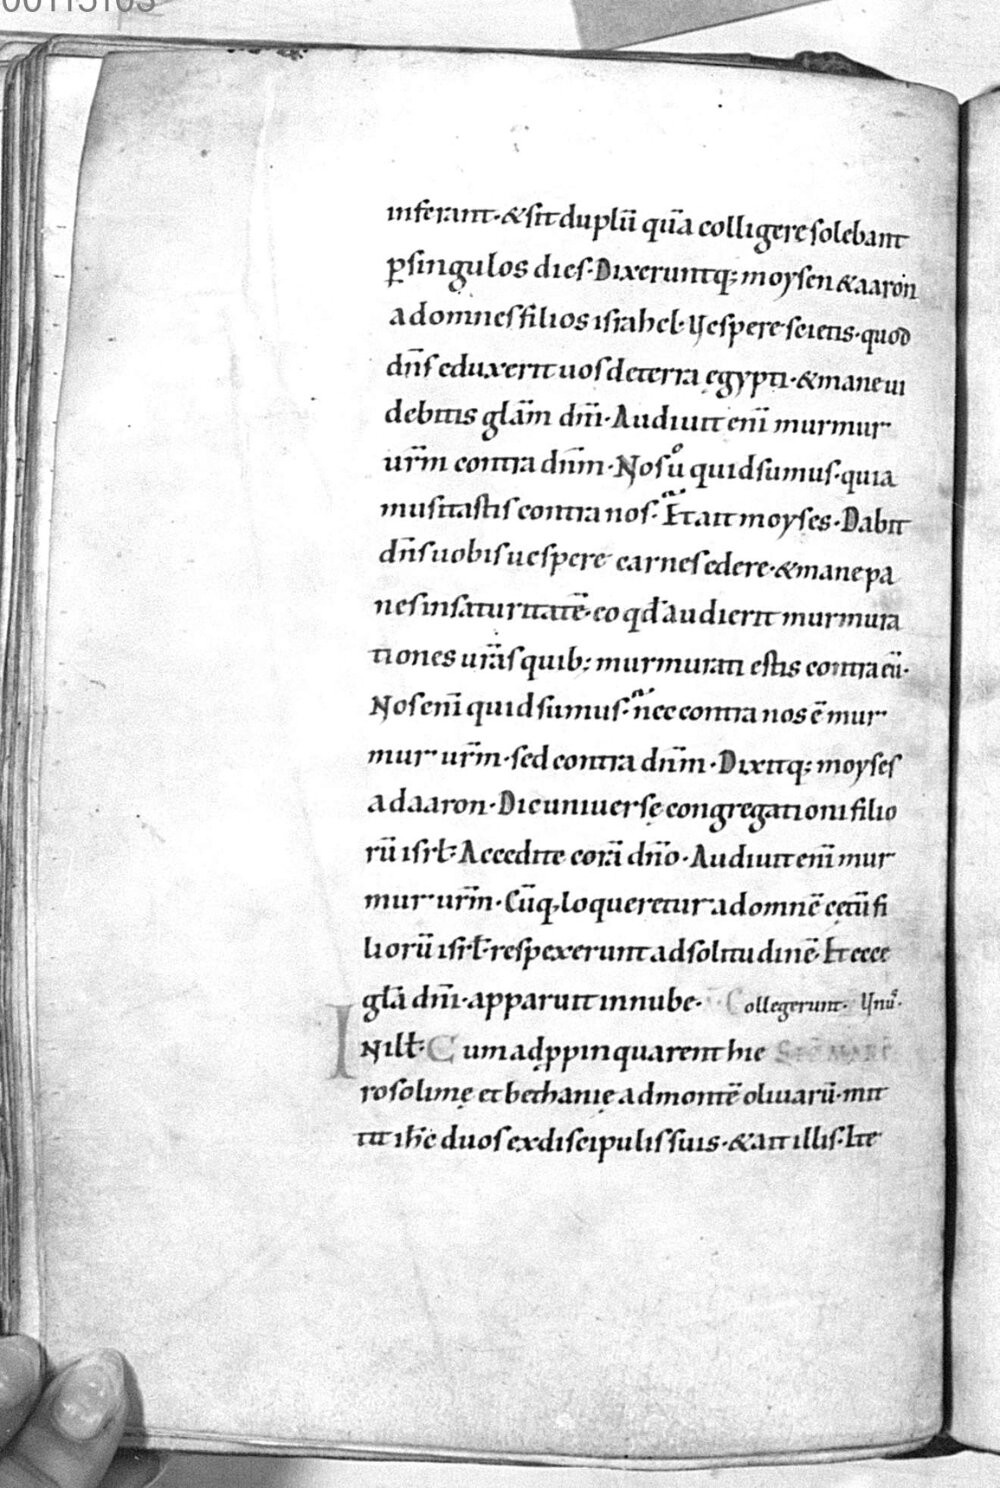 00115103
inferant·&sit duplū quā colligere solebant
ꝑ singulos dies· Dixeruntq; moysen & aaron
ad omnes filios israhel· Vespere scietis· quod
dn̄s eduxerit uos de terra ęgypti· & mane ui
debitis glām dn̄i· Audiuit enī murmur
ur̄m contra dnm̄· Nos ů quid sumus· quia
musitastis contra nos· Et ait moyses· Dabit
dn̄s uobis uespere carnes edere· & mane pa
nes in saturitatē· eo qđ audierit murmura
tiones ur̄as quib; murmurati estis contra eū·
Nos enī quid sumus· nec contra nos ē mur
mur ur̄m· sed contra dnm̄· Dixitq; moyses
ad aaron· Dic uniuersę congregationi filio
rū isrł· Accedite corā dn̄o· Audiuit enī mur
mur ur̄m· Cūq; loqueretur ad omnē cętū fi
liorū isrł· respexerunt ad solitudinē· Et ecce
glā dn̄i· apparuit in nube· Collegerunt· Vnů·
IN ill̄· Cum adp̱pinquarent hie
rosolimę et bethanię ad montē oliuarū· mit
tit ih̄c duos ex discipulis suis· & ait illis· Ite